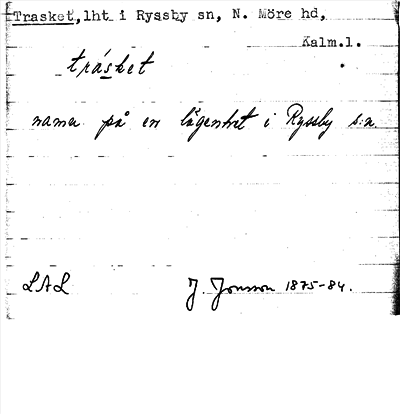 Trasket, lht i Ryssby sn, N. Möre hd,
Kalm.l.
tråsket
namn på en lägenhet i Ryssby s:n.
LAL J. Jonsson 1875-84.